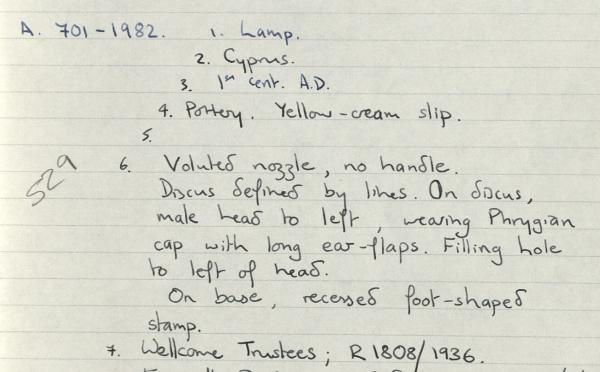 A. 701-1982. 1. Lamp.
2. Cyprus.
3. 1st cent. A.D.
4. Pottery. Yellow-cream slip.
5.
529
6. Voluted nozzle, no handle.
Discus defined by lines. On discus,
male head to left, wearing Phrygian
cap with long ear-flaps. Filling hole
to left of head.
On base, recessed foot-shaped
stamp.
7. Wellcome Trustees; R1808/1936.